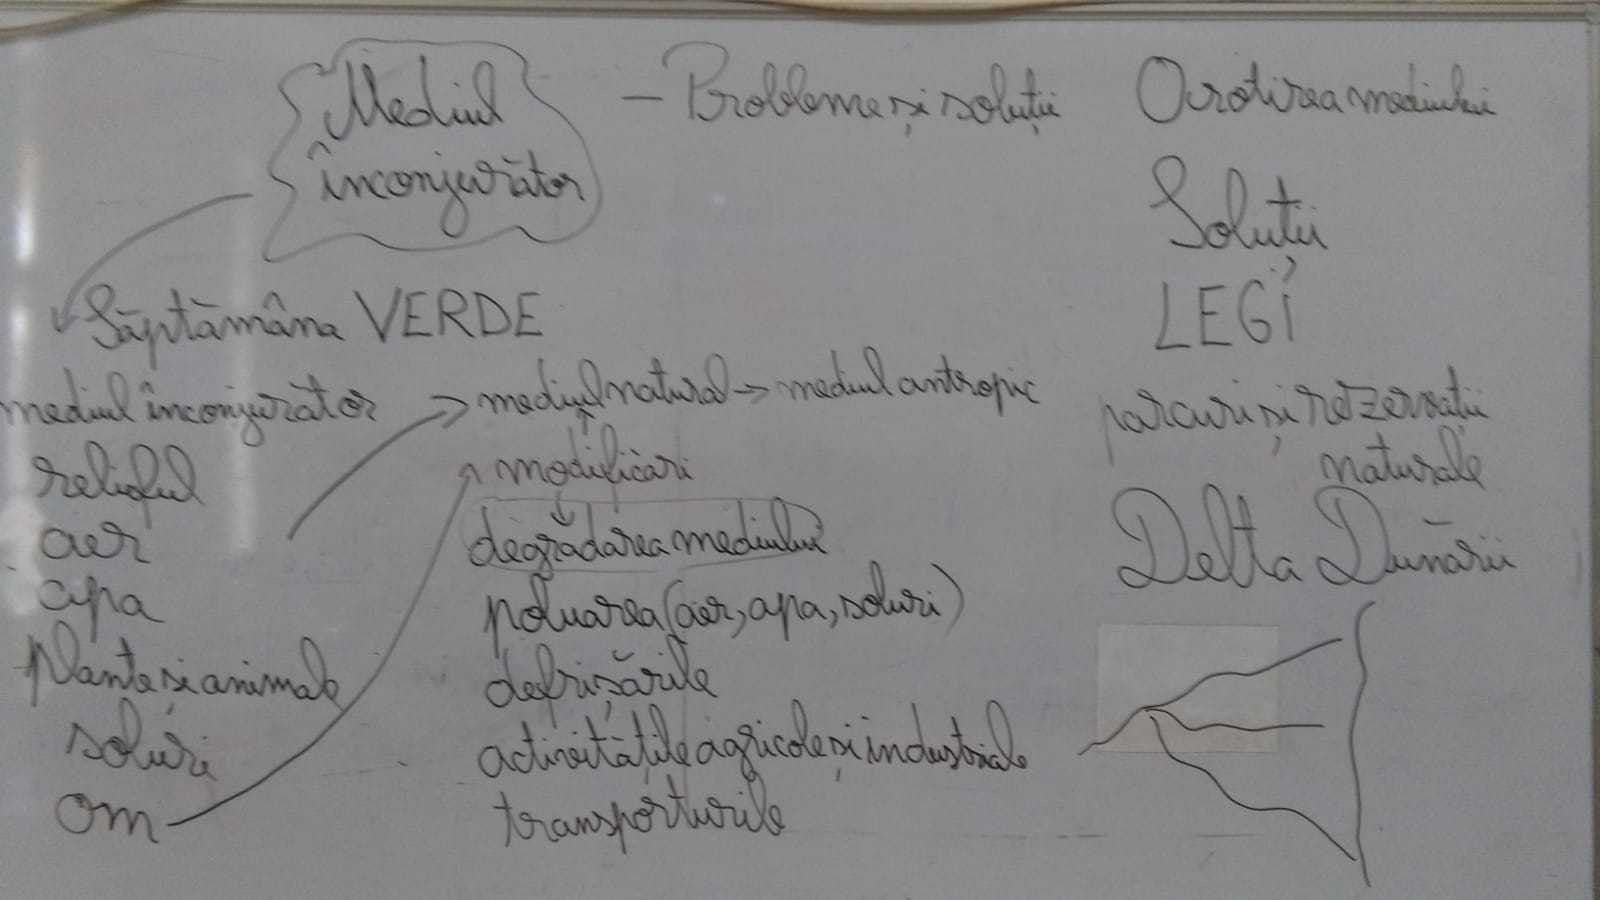 Mediul
înconjurător
– Probleme și soluții
Săptămâna VERDE
mediul înconjurător
relieful
aer
apa
plante și animale
soluri
om
→ mediul natural → mediul antropic
modificări
degradarea mediului
poluarea (aer, apa, soluri)
defrișările
activitățile agricole și industriale
transporturile
Ocrotirea mediului
Soluții
LEGI
parcuri și rezervații
naturale
Delta Dunării